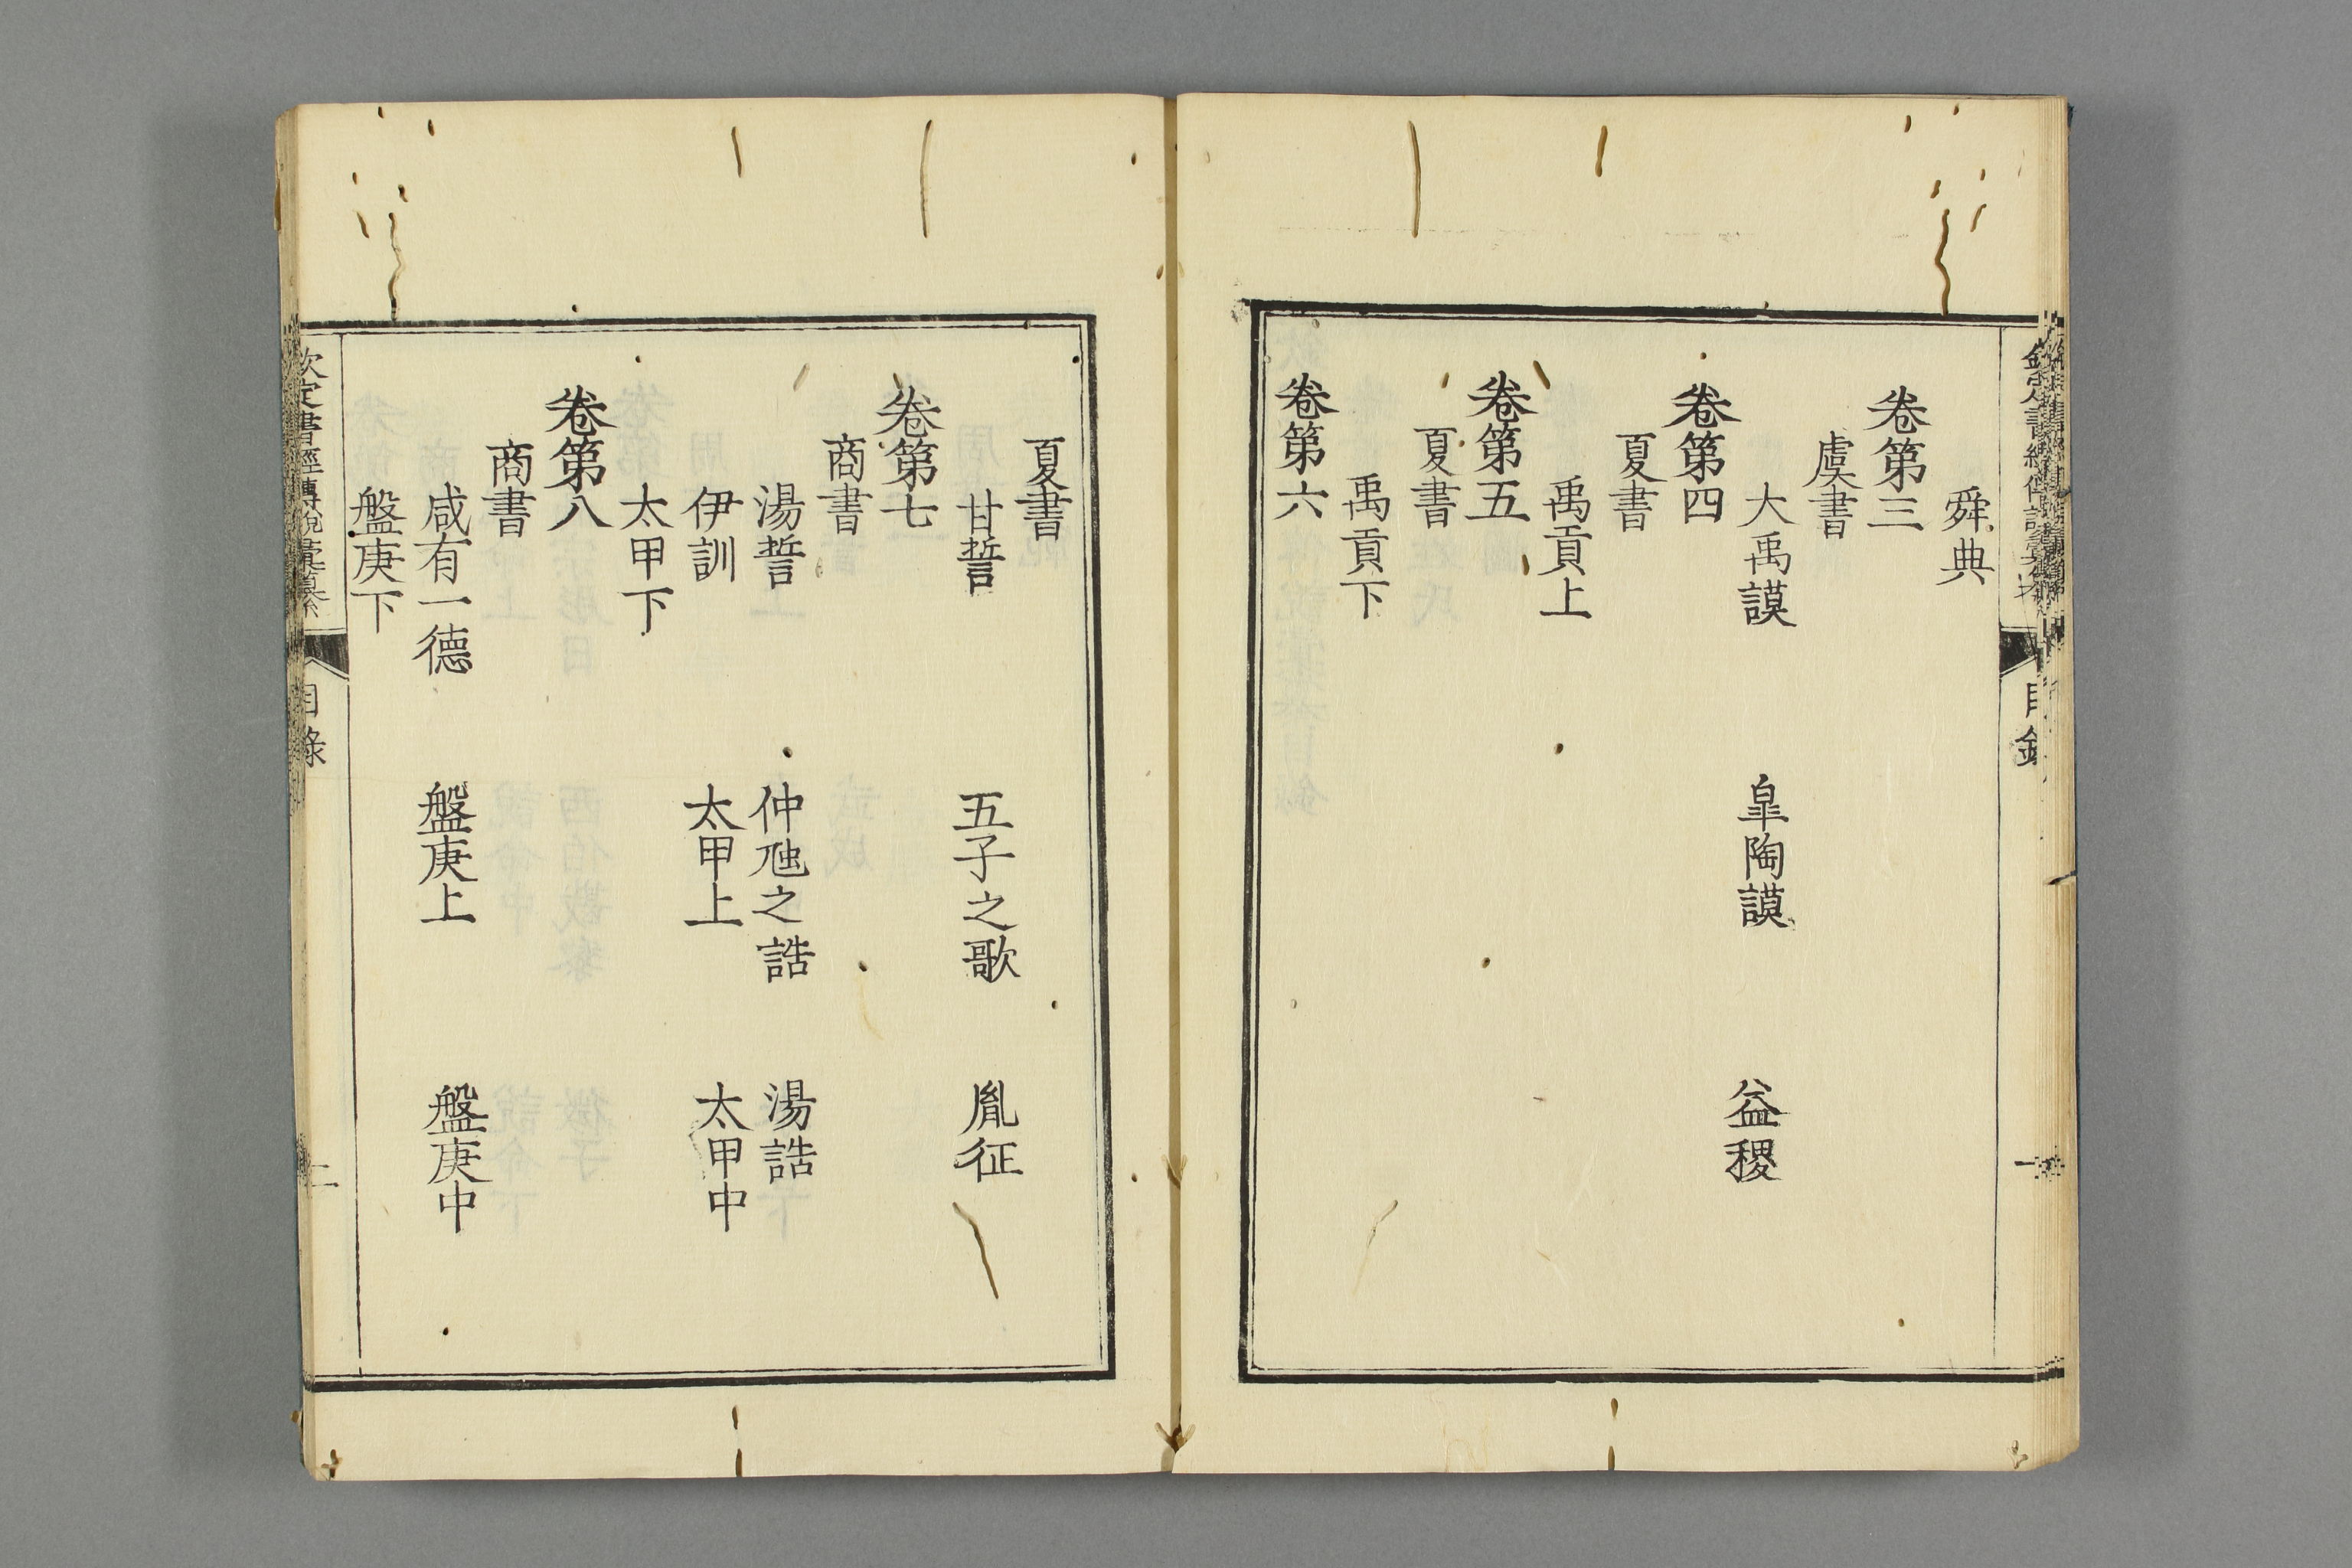 舜典
卷第三
虞書
大禹謨 皐陶謨 益稷
卷第四
夏書
禹貢上
卷第五
夏書
禹貢下
卷第六
夏書
甘誓 五子之歌 胤征
卷第七
商書
湯誓 仲虺之誥 湯誥
伊訓 太甲上 太甲中
太甲下
卷第八
商書
咸有一德 盤庚上 盤庚中
盤庚下
欽定書經傳說彙纂 目錄 二